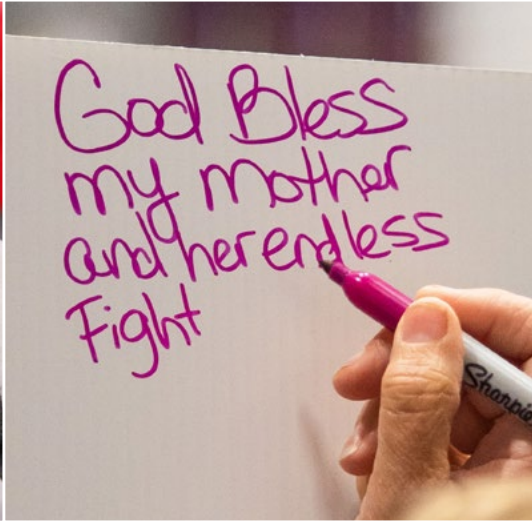 God Bless
my mother
and her endless
Fight
Sharpie